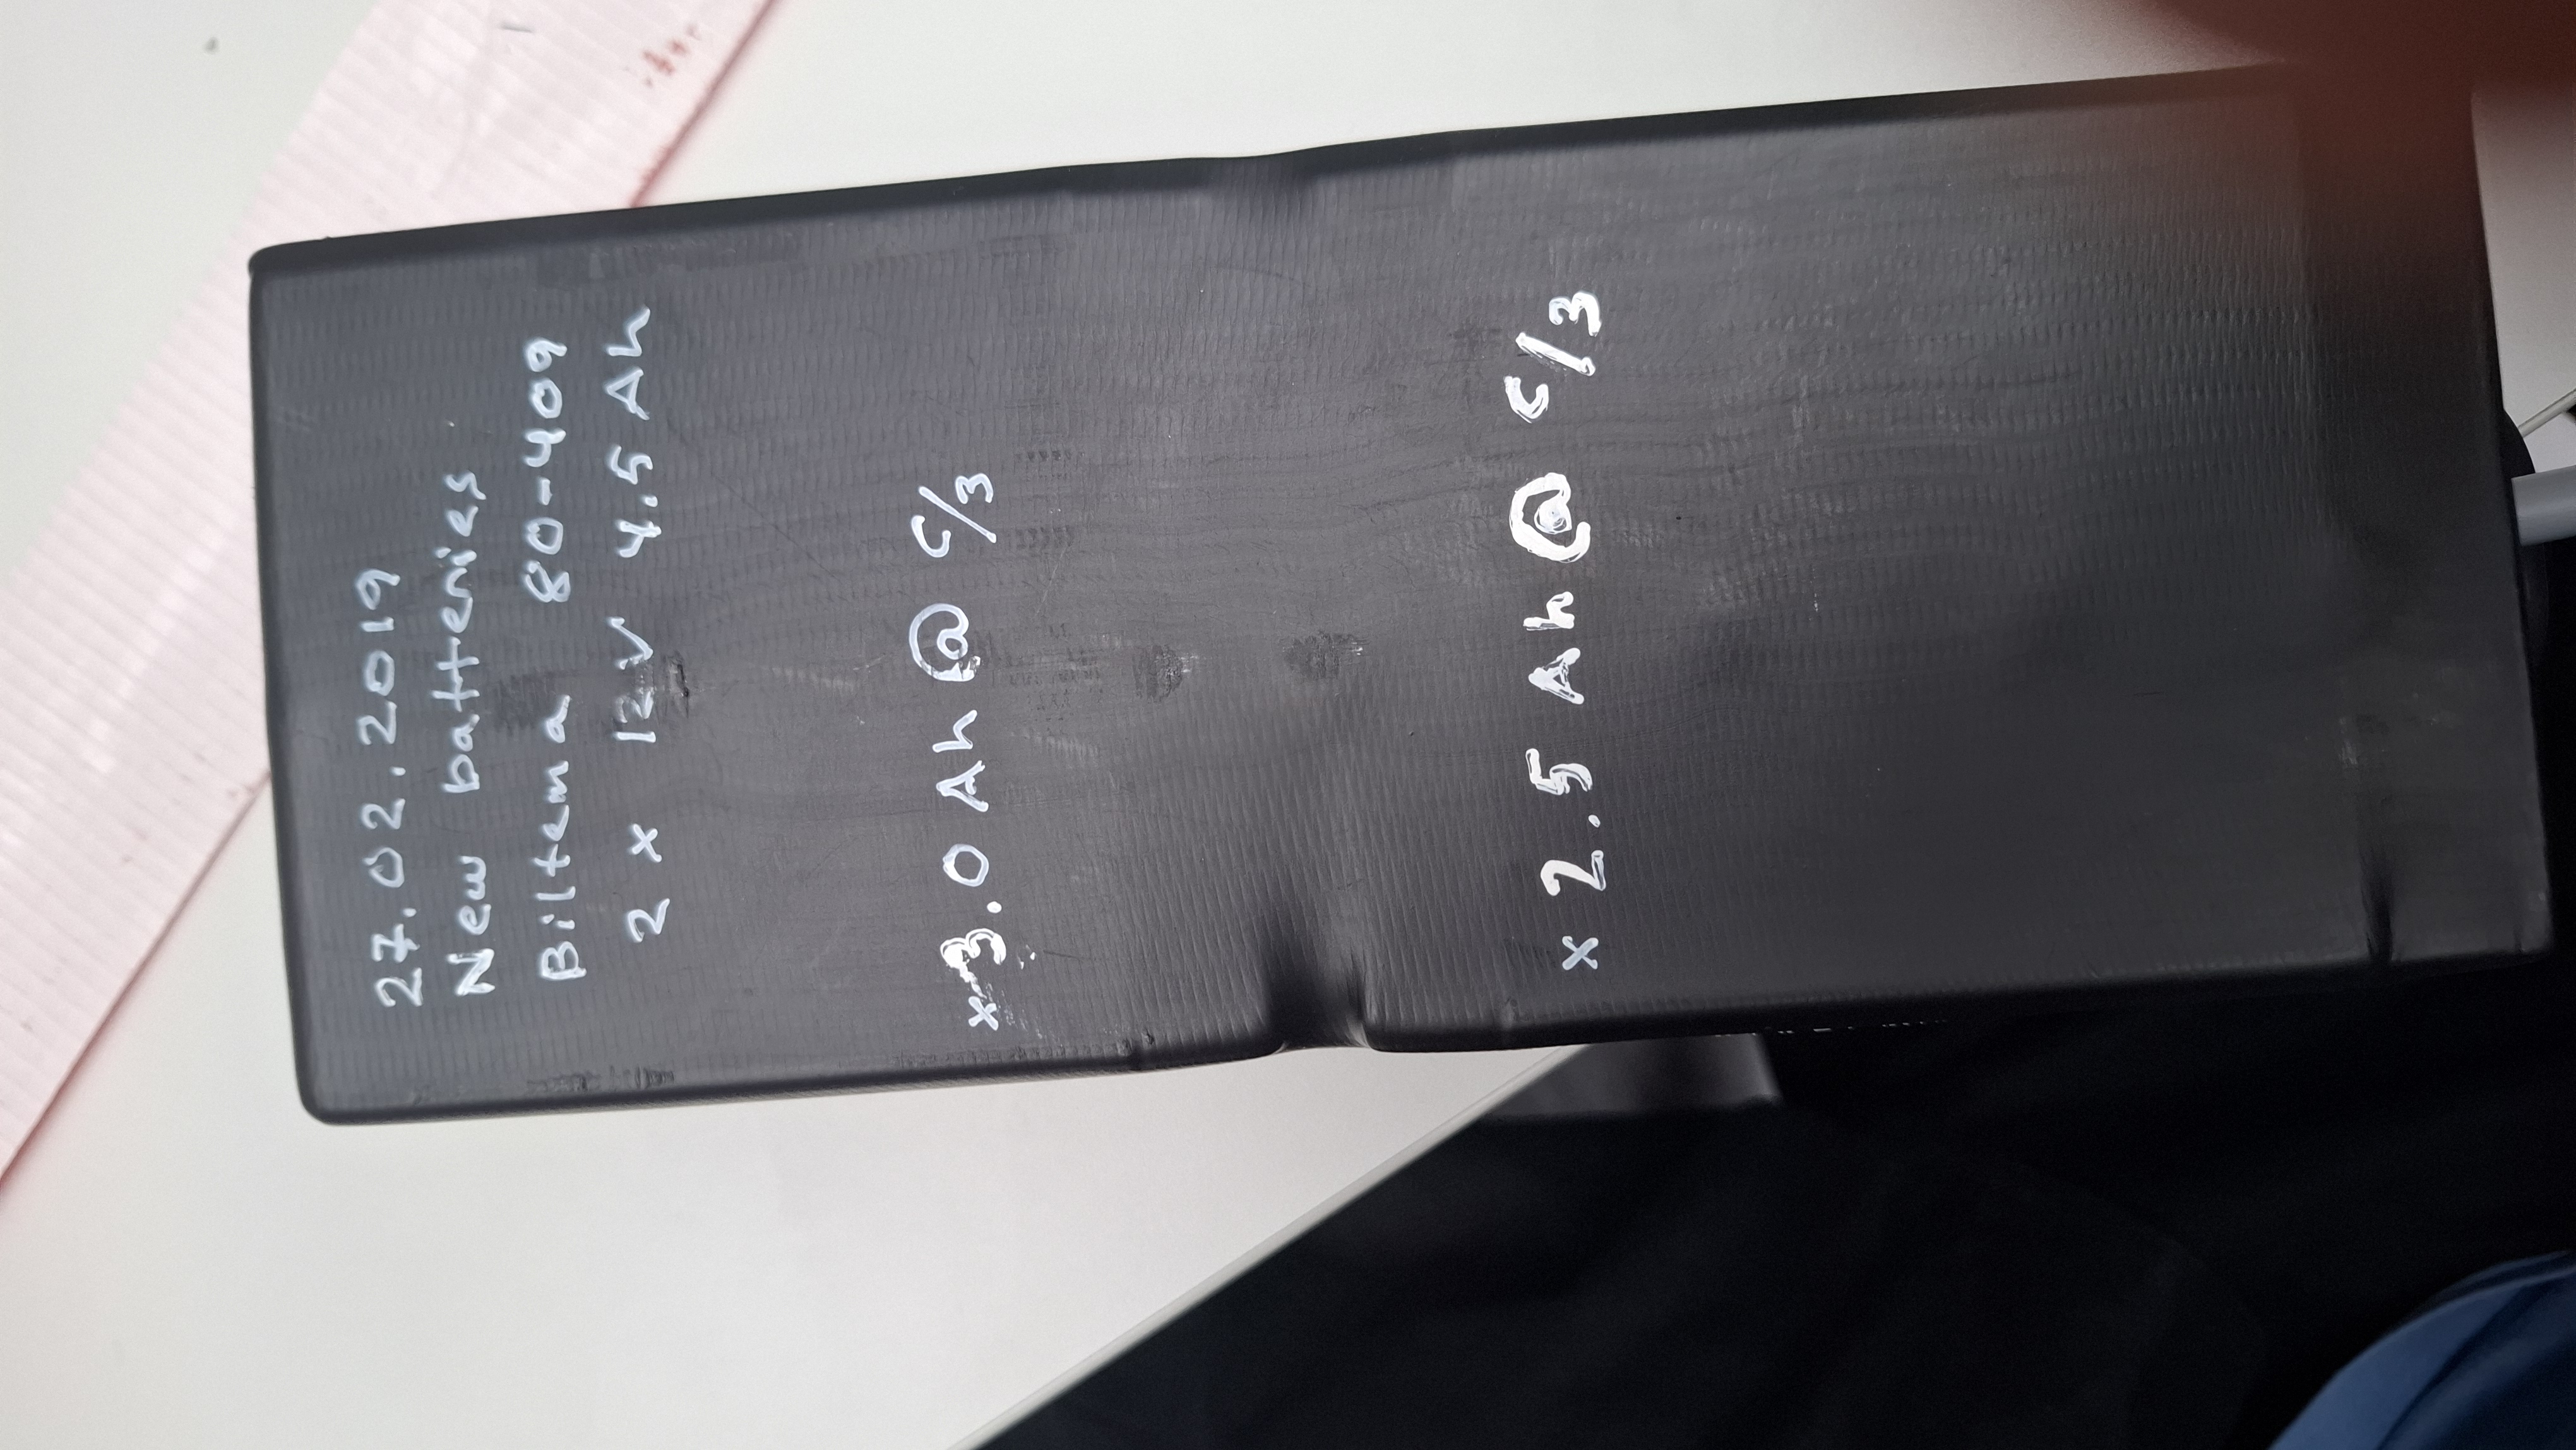 27.02.2019
New batteries
Biltema 80-409
2 x 12V 4.5 Ah
x 3.0 Ah @ C/3
x 2.5 Ah @ C/3